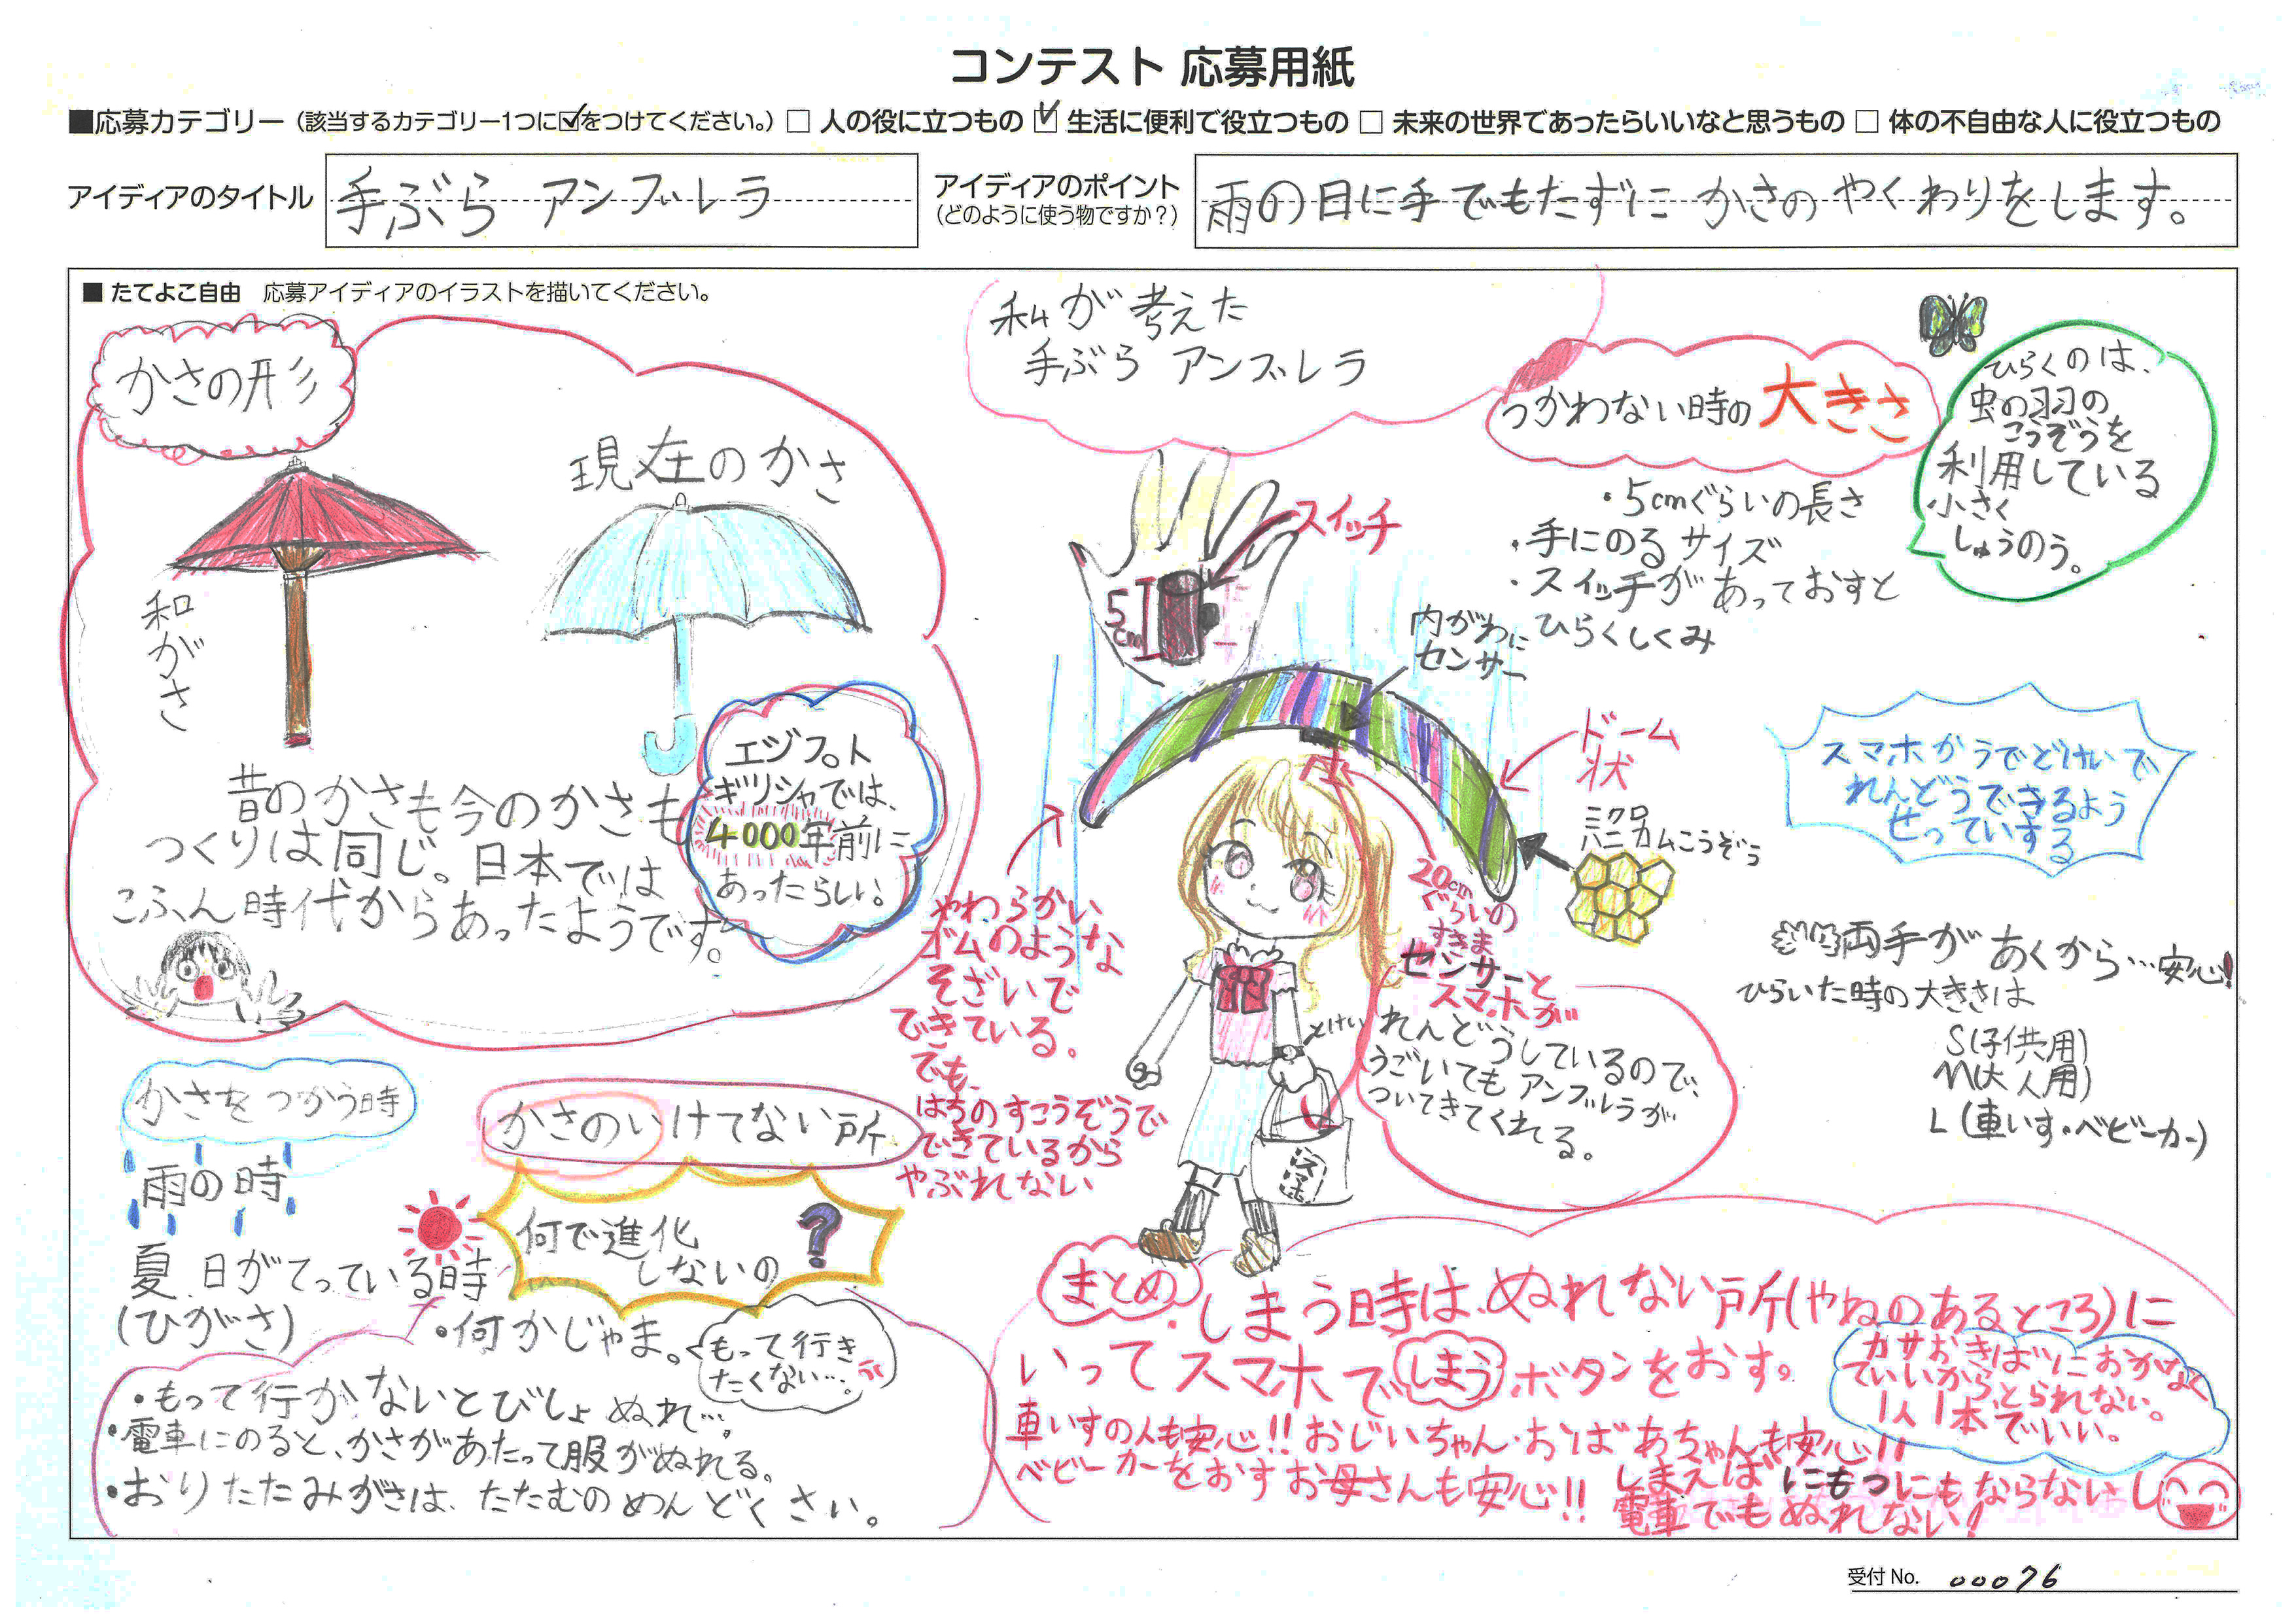 コンテスト 応募用紙
■応募カテゴリー（該当するカテゴリー1つに☑をつけてください。）□ 人の役に立つもの ☑ 生活に便利で役立つもの □ 未来の世界であったらいいなと思うもの □ 体の不自由な人に役立つもの
アイディアのタイトル
手ぶら アンブレラ
アイディアのポイント
（どのように使う物ですか？）
雨の日に手でもたずに かさの やくわりをします。
■ たてよこ自由 応募アイディアのイラストを描いてください。
かさの形
和がさ
現在のかさ
昔のかさも今のかさも
つくりは同じ。日本では
こふん時代からあったようです。
エジプト
ギリシャでは、
4000年前に
あったらしい!
かさをつかう時
雨の時
夏 日がてっている時
(ひがさ)
かさのいけてない所
何で進化
しないの?
・何かじゃま。
もって行き
たくない…。
・もって行かないとびしょぬれ…。
・電車にのると、かさがあたって服がぬれる。
・おりたたみがさは、たたむのめんどくさい。
私が考えた
手ぶら アンブレラ
スイッチ
5cm
つかわない時の大きさ
・5cmぐらいの長さ
・手にのるサイズ
・スイッチがあっておすと
ひらくしくみ
ひらくのは、
虫の羽の
こうぞうを
利用している
小さく
しゅうのう。
内がわに
センサー
ドーム
状
ミクロ
ハニカムこうぞう
やわらかい
ゴムのような
そざいで
できている。
でも、
はちのすこうぞうで
できているから
やぶれない
20cm
ぐらいの
すきま
センサーと
スマホが
れんどうしているので、
うごいてもアンブレラが
ついてきてくれる。
とけい
スマホかうでどけいで
れんどうできるよう
せっていする
両手があくから…安心!
ひらいた時の大きさは
S(子供用)
M(大人用)
L(車いす・ベビーカー)
まとめ
・しまう時は、ぬれない所(やねのあるところ)に
いってスマホでしまうボタンをおす。
カサおきばにおかなく
ていいから、とられない。
1人1本でいい。
車いすの人も安心!! おじいちゃん・おばあちゃんも安心!!
ベビーカーをおすお母さんも安心!!
しまえばにもつにもならないし
電車でもぬれない!
受付 No. 00076